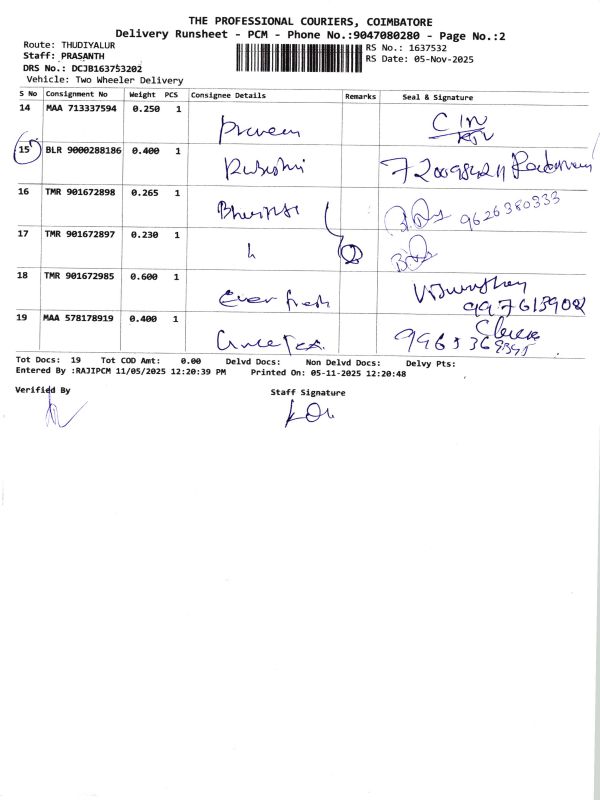 THE PROFESSIONAL COURIERS, COIMBATORE
Delivery Runsheet - PCM - Phone No.:9047080280 - Page No.:2
Route: THUDIYALUR
Staff: PRASANTH
DRS No.: DCJB163753202
Vehicle: Two Wheeler Delivery
RS No.: 1637532
RS Date: 05-Nov-2025
S No Consignment No Weight PCS Consignee Details Remarks Seal & Signature
14 MAA 713337594 0.250 1 Praveen
15 BLR 9000288186 0.400 1
16 TMR 901672898 0.265 1 9626380333
17 TMR 901672897 0.230 1
18 TMR 901672985 0.600 1 Ever fresh
19 MAA 578178919 0.400 1
Tot Docs: 19 Tot COD Amt: 0.00 Delvd Docs: Non Delvd Docs: Delvy Pts:
Entered By :RAJIPCM 11/05/2025 12:20:39 PM Printed On: 05-11-2025 12:20:48
Verified By
Staff Signature